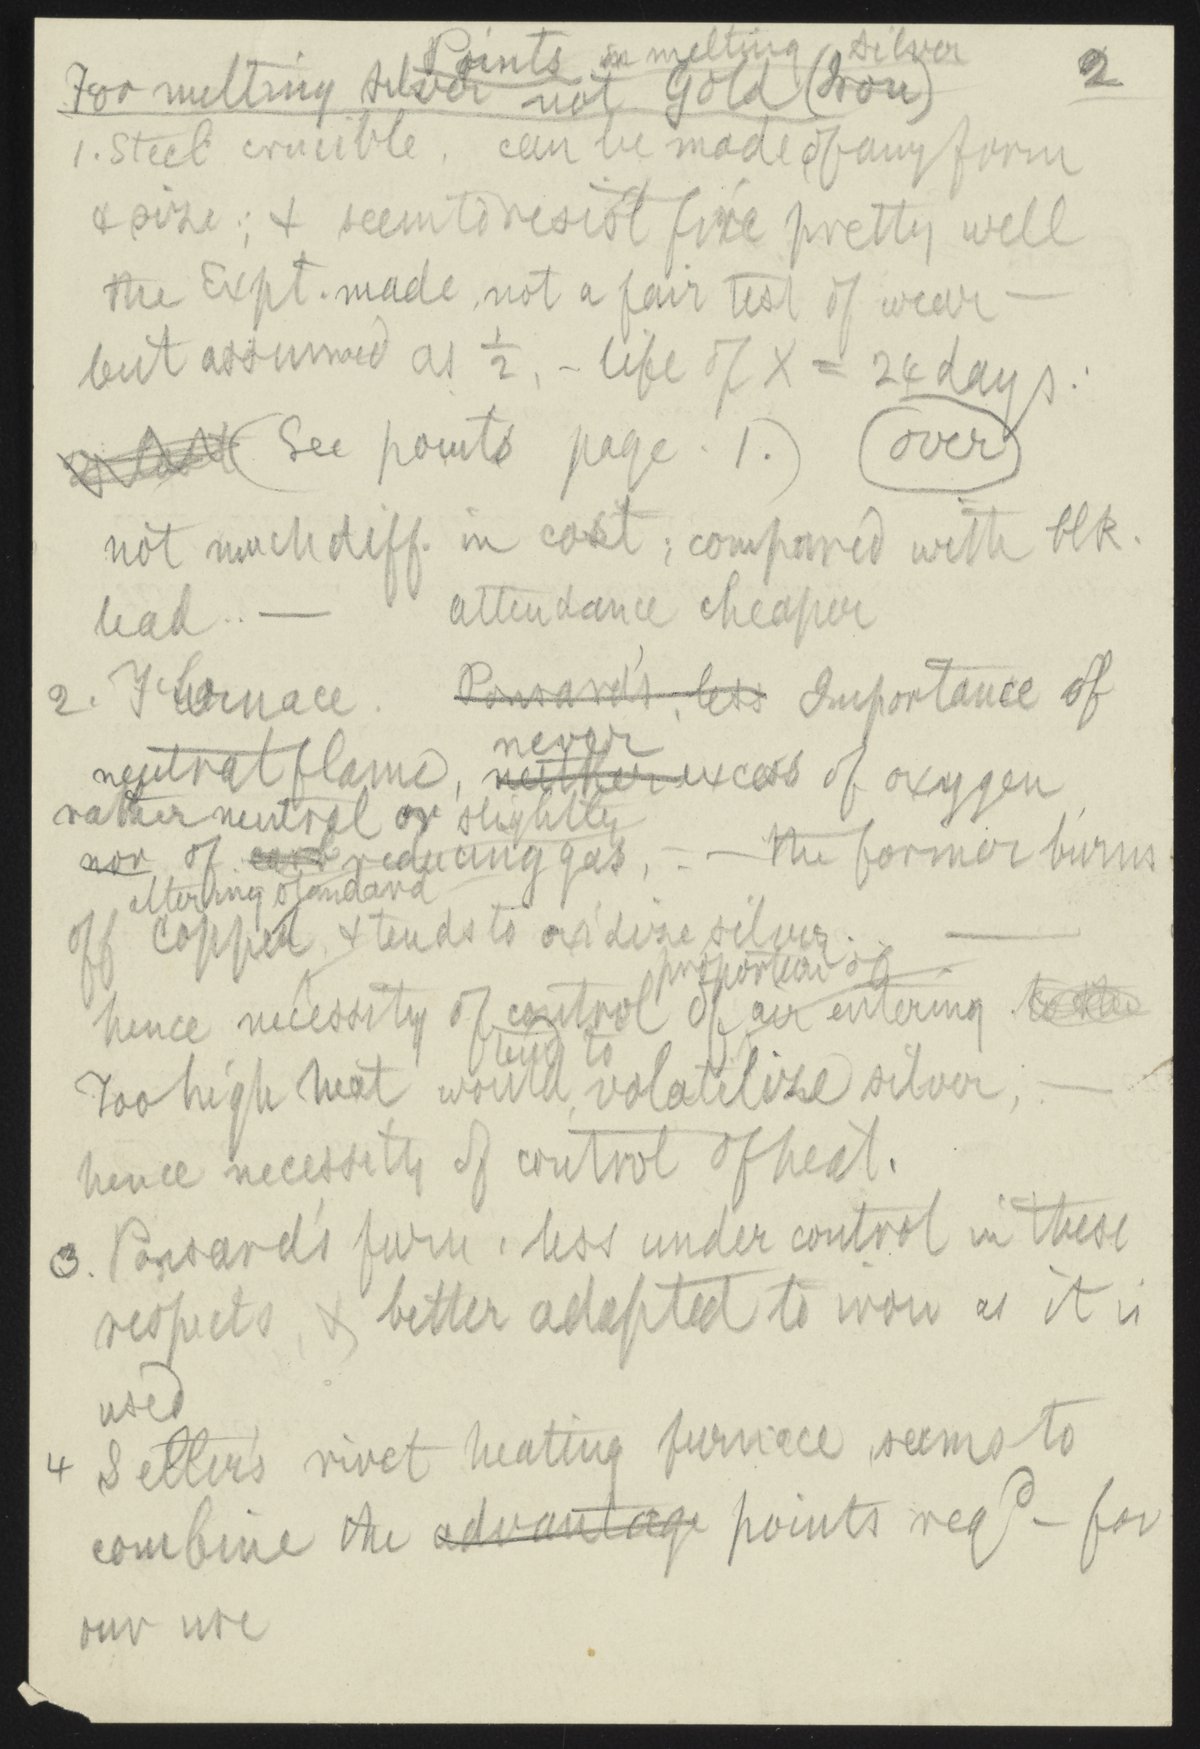 Points in melting silver 2
For melting silver not Gold (Iron)
1. Steel crucible, can be made of any form
& size; & seem to resist fire pretty well
the Expt. made, not a fair test of wear —
but assumed as ½, - life of X = 24 days.
(See points page 1.) over
not much diff. in cost; compared with blk.
lead .. — attendance cheaper
2. Furnace. Ponsard's, less Importance of
never
neutral flame, neither excess of oxygen
rather neutral or slightly
nor of reducing gas, - — the former burns
altering standard
off copper, & tends to oxidize silver. —
proportion of
hence necessity of control of air entering to the
tend to
Too high heat would, volatilize silver, —
hence necessity of control of heat.
3. Ponsard's furn, less under control in these
respects, & better adapted to iron as it is
used
4 Setler's rivet heating furnace, seems to
combine the advantage points reqd — for
our use